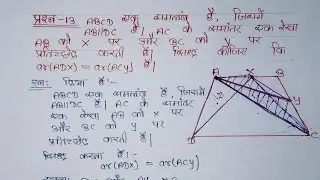 प्रश्न-13 ABCD एक समलंब है, जिसमें
AB||DC है। AC के समांतर एक रेखा
AB को X पर और BC को Y पर
प्रतिच्छेद करती है। सिद्ध कीजिए कि
ar(ADX) = ar(ACY) है।
हल: दिया है:-
ABCD एक समलंब है, जिसमें
AB||DC है। AC के समांतर
एक रेखा AB को X पर
और BC को Y पर
प्रतिच्छेद करती है।
सिद्ध करना है:-
ar(ADX) = ar(ACY)
A X B
Y
D C